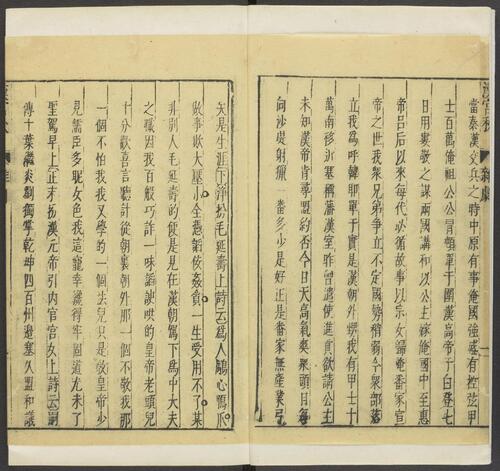 漢宮秋 雜劇 一
當秦漢交兵之時中原有事俺國強盛有控弦甲
士百萬俺祖公公冒頓單于圍漢高帝于白登七
日用婁敬之謀兩國講和以公主嫁俺國中至惠
帝呂后以來每代必循故事以宗女歸俺番家宣
帝之世我衆兄弟爭立不定國勢稍弱今衆部落
立我為呼韓耶單于實是漢朝外甥我有甲士十
萬南移近塞稱藩漢室昨曾遣使進貢欲請公主
未知漢帝肯尋盟約否今日天高氣爽衆頭目每
向沙堤射獵一番多少是好正是番家無產業弓
矢是生涯下淨扮毛延壽上詩云為人鵰心鴈爪
做事欺大壓小全憑諂佞姦貪一生受用不了某
非别人毛延壽的便是見在漢朝駕下為中大夫
之職因我百般巧詐一味諂諛哄的皇帝老頭兒
十分歡喜言聽計從朝裏朝外那一個不敬我那
一個不怕我我又學的一個法兒只是教皇帝少
見儒臣多昵女色我這寵幸纔得牢固道尤未了
聖駕早上正末扮漢元帝引內官宮女上詩云嗣
傳十葉繼炎劉獨掌乾坤四百州邊塞久盟和議